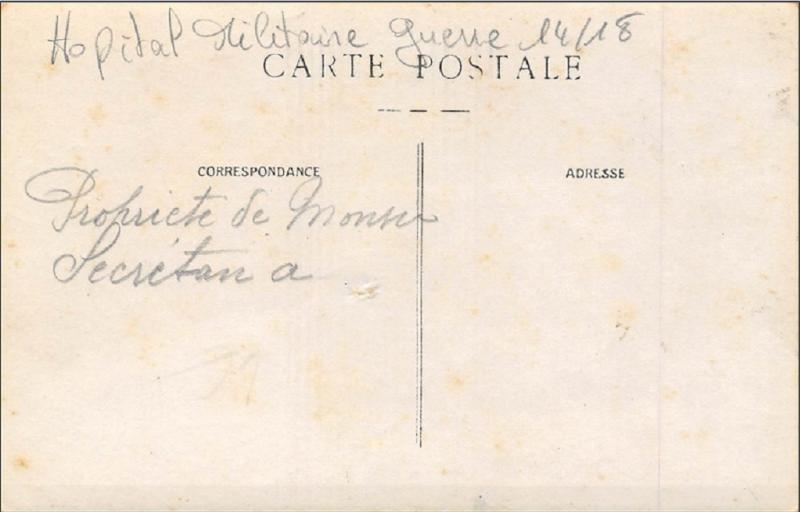 Hopital Militaire Guerre 14/18
CARTE POSTALE
CORRESPONDANCE
ADRESSE
Propriete de
Secrétan a